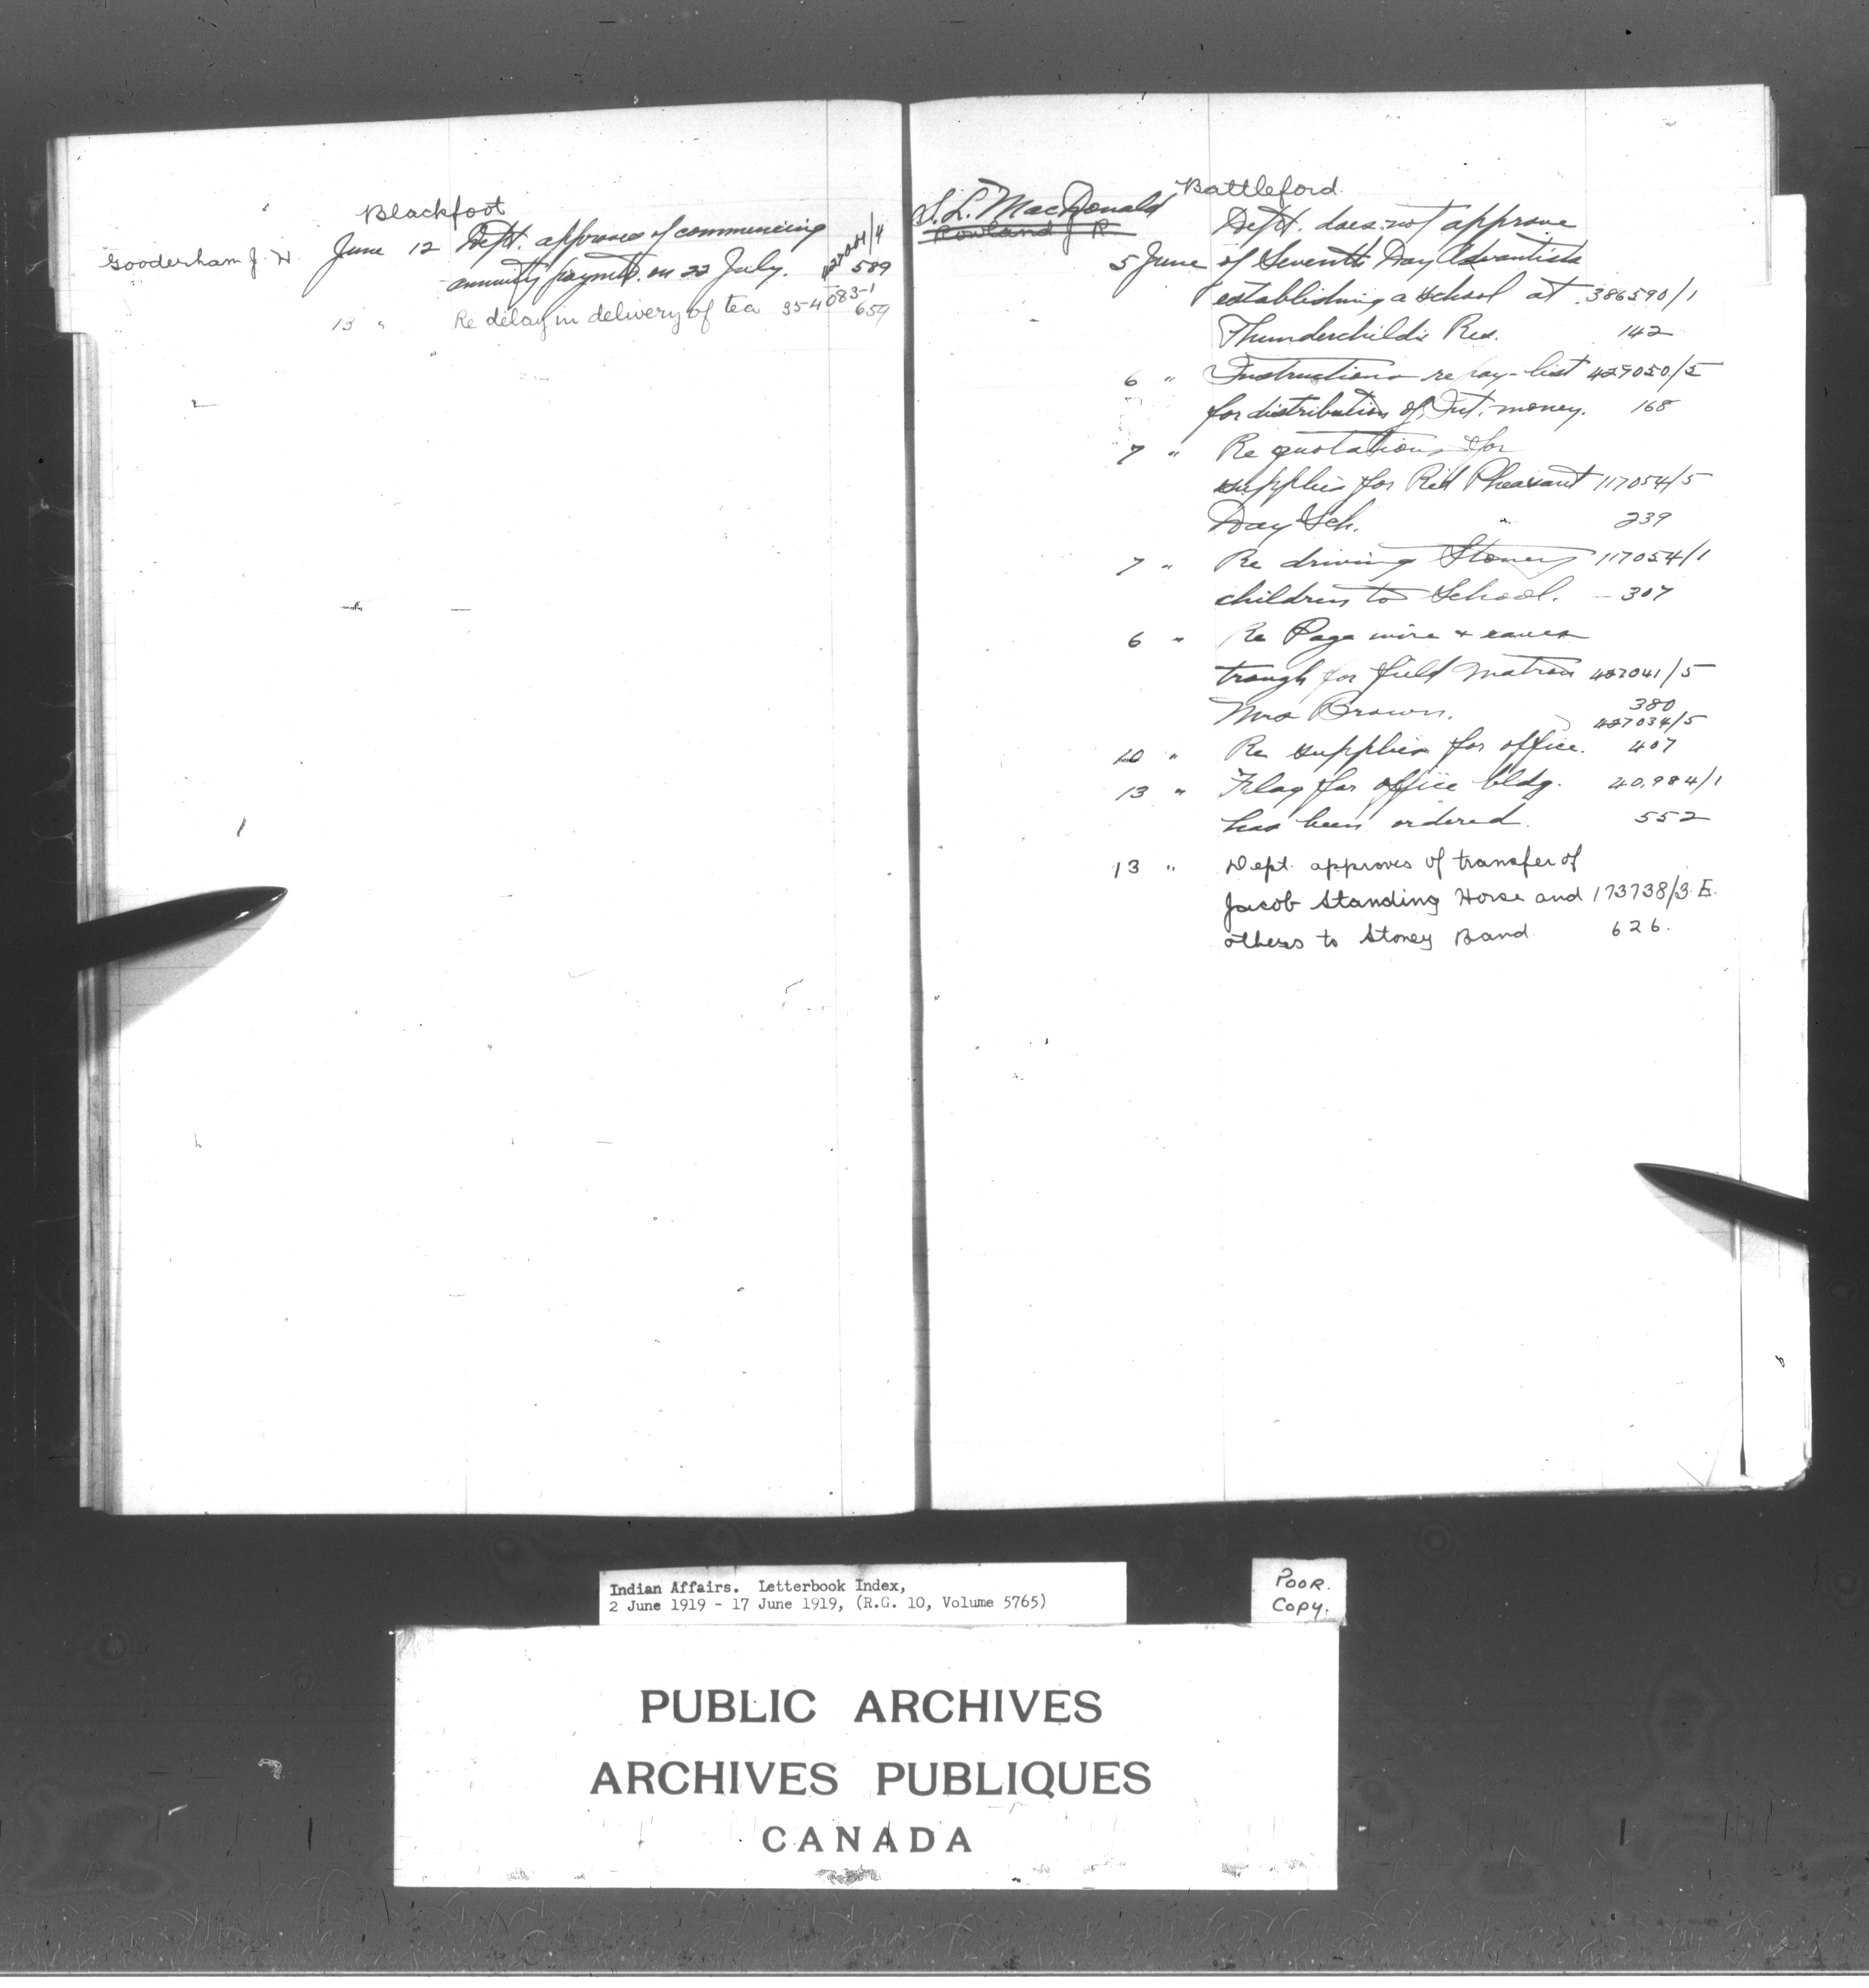 Blackfoot
Gooderham J. H. June 12 Dept. approves of commencing
annuity paymts. on 22 July. 589
13 " Re delay in delivery of tea 354083-1
659
Battleford
S. L. MacDonald
Rowland J R
Dept. does not approve
5 June of Seventh Day Advantists
establishing a School at 386590/1
Thunderchild's Res. 142
6 " Instructions re pay-list 427050/5
for distribution of Int. money. 168
7 " Re quotations for
supplies for Red Pheasant 117054/5
Day Sch. 239
7 " Re driving Stoney 117054/1
children to School. - 307
6 " Re Page wire & eaves
trough for field matron 427041/5
Mrs Brown. 380
427034/5
10 " Re supplies for office. 407
13 " Flag for office bldg. 40,984/1
has been ordered. 552
13 " Dept. approves of transfer of
Jacob Standing Horse and 173738/3.E.
others to Stoney Band 626.
Indian Affairs. Letterbook Index,
2 June 1919 - 17 June 1919, (R.G. 10, Volume 5765)
POOR.
COPY.
PUBLIC ARCHIVES
ARCHIVES PUBLIQUES
CANADA